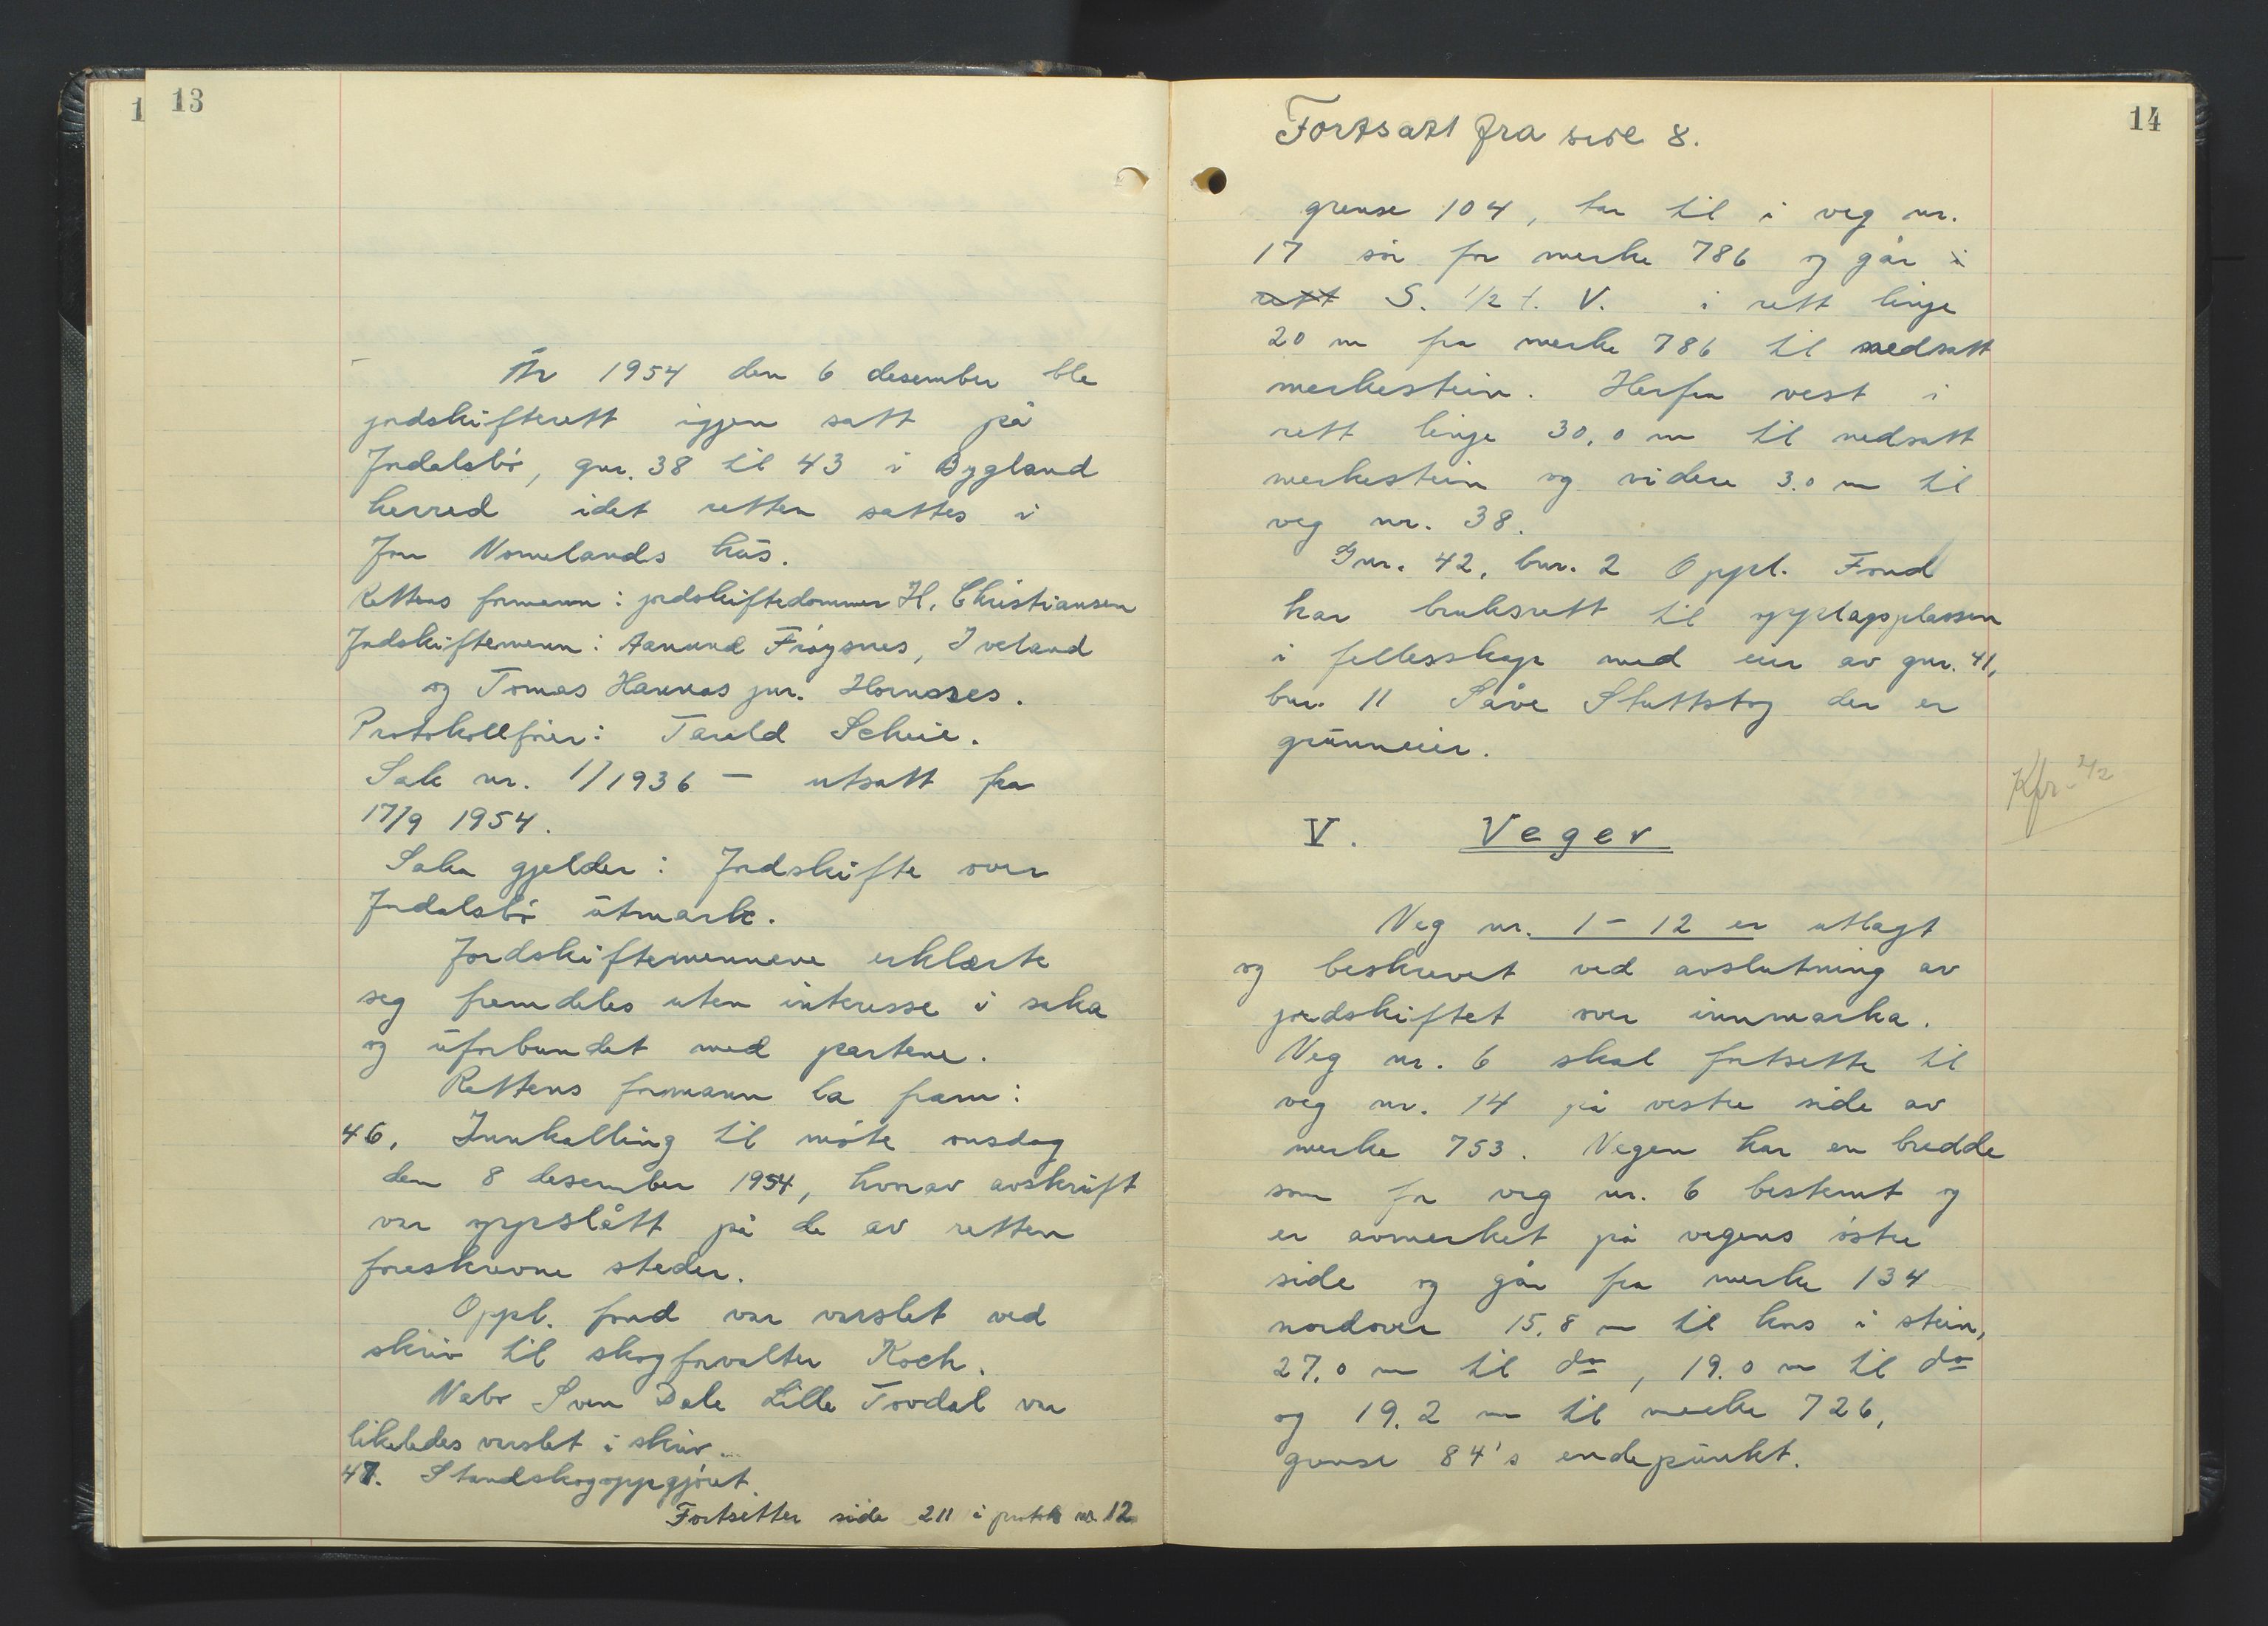 1
13
År 1954 den 6 desember ble
jordskifterett igjen satt på
Jordalsbø, gnr. 38 til 43 i Bygland
herred idet retten sattes i
Jon Nomelands hus.
Rettens formann: jordskiftedommer H. Christiansen
Jordskiftemenn: Aanund Frøysnes, Iveland
og Tomas Hannås jnr. Hornnes.
Protokollfører: Tarald Scheie.
Sak nr. 1/1936 – utsatt fra
17/9 1954.
Saka gjelder: Jordskifte over
Jordalsbø utmark.
Jordskiftemennene erklærte
seg fremdeles uten interesse i saka
og uforbundet med partene.
Rettens formann la fram:
46. Innkalling til møte onsdag
den 8 desember 1954, hvorav avskrift
var oppslått på de av retten
foreskrevne steder.
Oppl. fond var varslet ved
skriv til skogforvalter Koch.
Nabo Sven Dale Lille Tovdal var
likeledes varslet i skriv
47. Standskogoppgjøret.
Fortsetter side 211 i protok nr. 12
14
Fortsatt fra side 8.
grense 104, tar til i veg nr.
17 sør for merke 786 og går i
rett S. 1/2 t. V. i rett linje
20 m fra merke 786 til nedsatt
merkestein. Herfra vest i
rett linje 30,0 m til nedsatt
merkestein og videre 3.0 m til
veg nr. 38.
Gnr. 42, bnr. 2 Oppl. Fond
har bruksrett til opplagsplassen
i fellesskap med eier av gnr. 41,
bnr. 11 Såve Stuttstog der er
grunneier.
Kfr. 2/2
V. Veger
Veg nr. 1 – 12 er utlagt
og beskrevet ved avslutning av
jordskiftet over innmarka.
Veg nr. 6 skal fortsette til
veg nr. 14 på vestre side av
merke 753. Vegen har en bredde
som for veg nr. 6 bestemt og
er avmerket på vegens østre
side og går fra merke 134
nordover 15,8 m til kors i stein,
27,0 m til do, 19.0 m til do
og 19.2 m til merke 726,
grense 84's endepunkt.